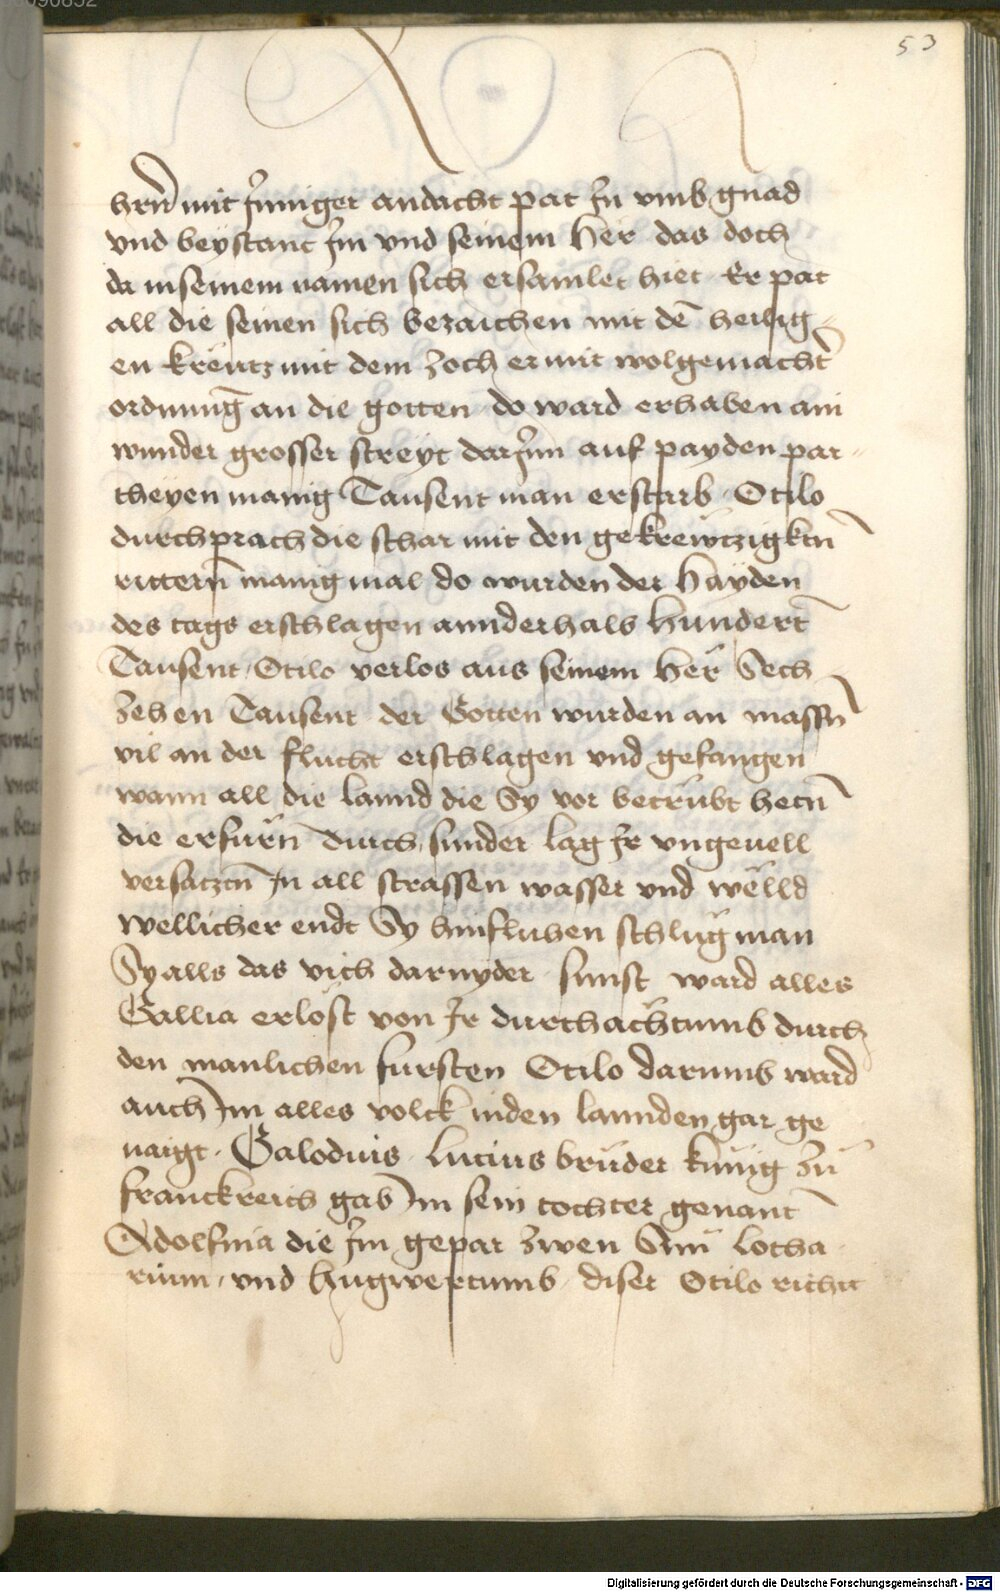 53
hrn̄ mit Jnniger andacht pat Jn vmb gnad
vnd beystant Jm vnd seinem Her das doch
da in seinem namen sich ersamlet hiet Er pat
all die seinen sich bezaichen mit dē heilig¬
en kreutz mit dem zoch er mit wolgemacht̄
ordnung an die gotten do ward erhaben ain
wunder grosser streyt darJnn auf payden par¬
theyen manig Tausent man erstarb Otilo
durchprach die schar mit den gekrewtzigktn̄
rittern̄ manig mal do wurden der Hayden
des tags erschlagen annderhalb hundert
Tausent Otilo verlos aus seinem Her Sech¬
zehen Tausent der Gotten wurden an massn̄
vil an der flucht erschlagen vnd gefangen
wann all die lannd die Sy vor betrübt hetn̄
die erfurn̄ durch sunder lag Jr vngeuell
versatztn̄ Jn all strassen wasser vnd wëlld
wellicher endt Sy hinfluhen schlug man
Sy alls das vich darnyder sunst ward alles
Gallia erlöst von Jr durchächtumb durch
den manlichen fursten Otilo darumb ward
auch Jm alles volck in den lannden gar ge
naigt. Galodius Lucius bruder kunig zu
franckreich gab Jm sein tochter genant
Adolfina die Jm gepar zwen Sun Lotha
rium vnd hugwertumb diser Otilo richt
Digitalisierung gefördert durch die Deutsche Forschungsgemeinschaft - DFG